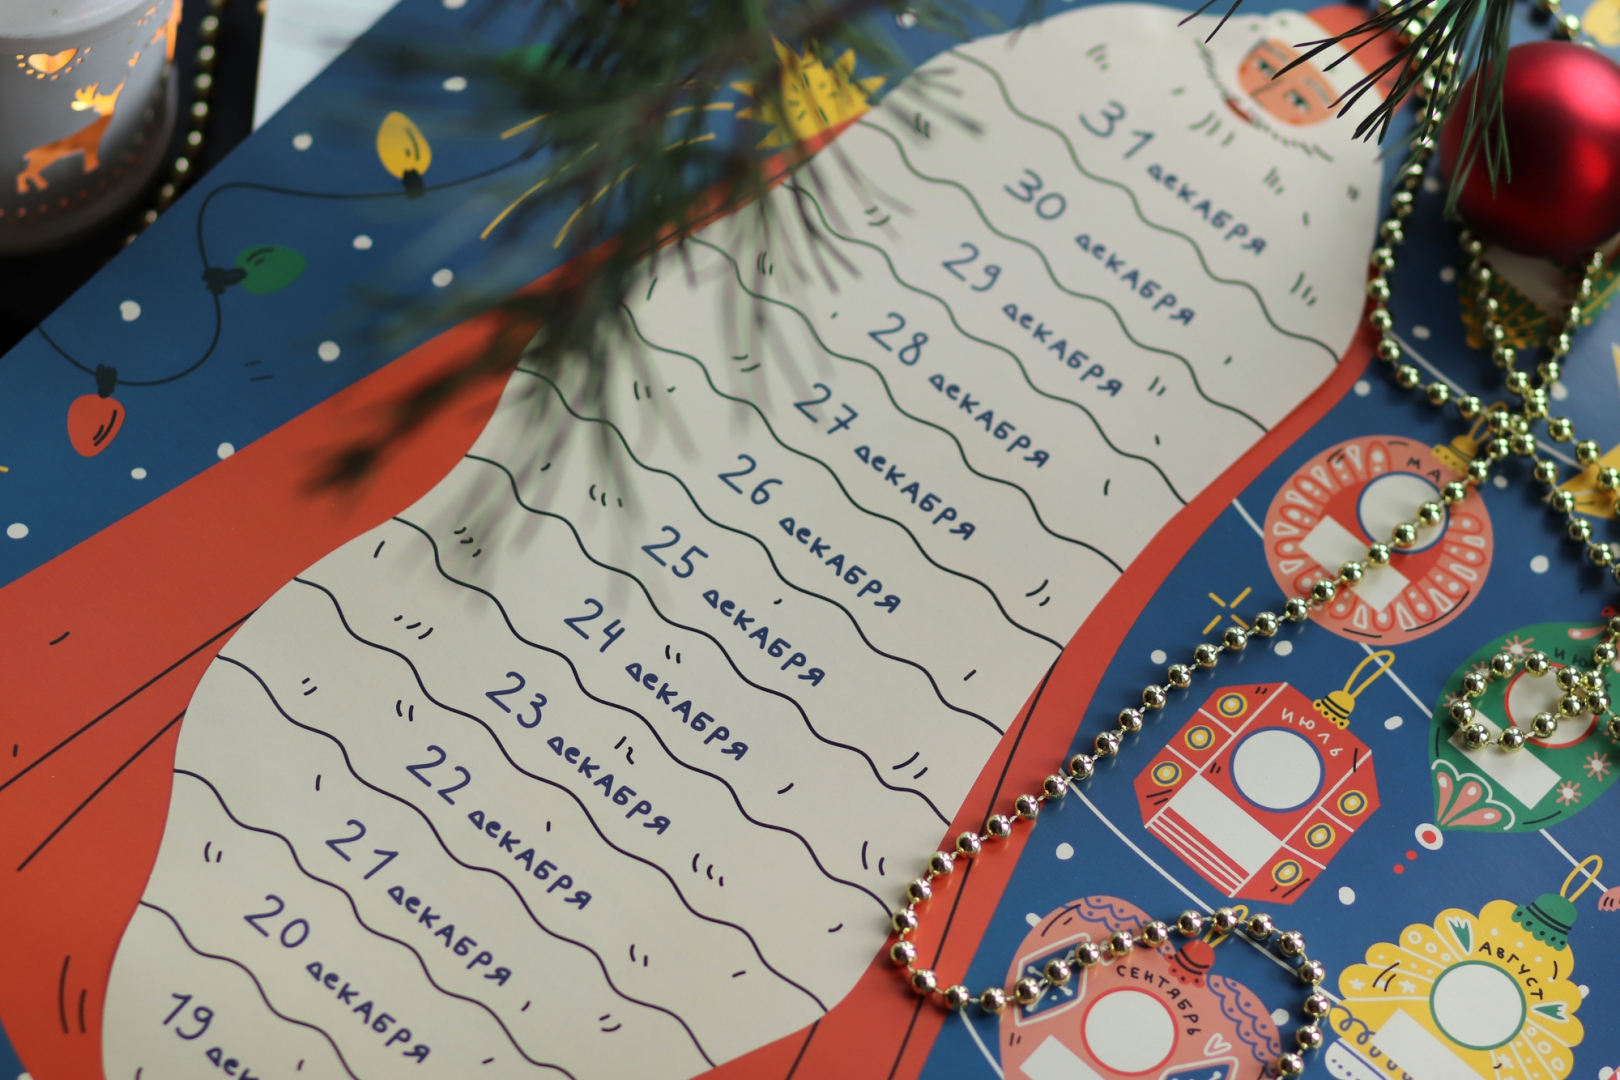 31 декабря
30 декабря
29 декабря
28 декабря
27 декабря
26 декабря
25 декабря
24 декабря
23 декабря
22 декабря
21 декабря
20 декабря
19 дек
МА
ИЮ
ИЮЛЬ
АВГУСТ
СЕНТЯБРЬ